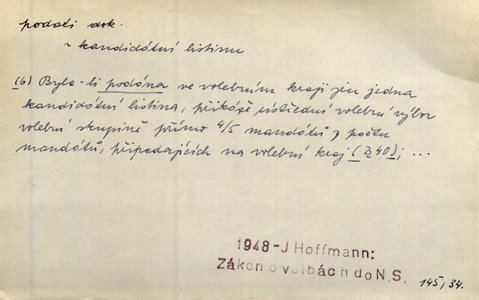 podati dok.
~ kandidátní listinu
(6) Byla-li podána ve volebním kraji jen jedna
kandidátní listina, přikáže ústřední volební výbor
volební skupině přímo 4/5 mandátů z počtu
mandátů, připadajících na volební kraj (§ 40); ...
1948-J Hoffmann:
Zákon o volbách do N.S.
145, 34.